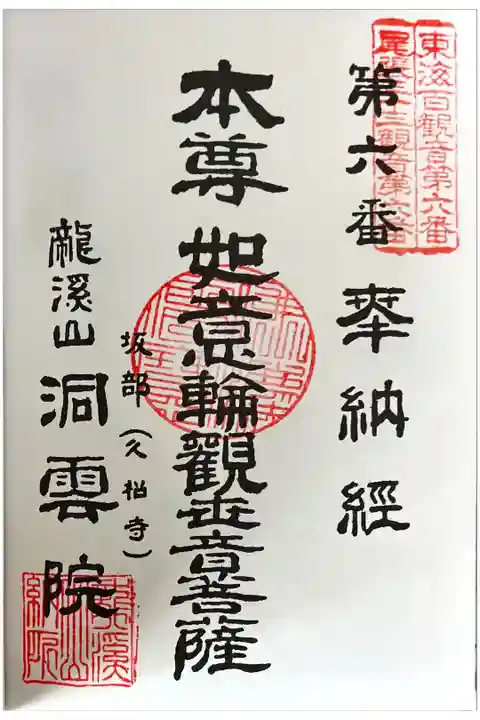 東海百観音第六番
尾張三十三観音第六番
第六番 奉納經
本尊 如意輪觀世音菩薩
坂部（久松寺）
龍溪山 洞雲院
龍溪山納経所